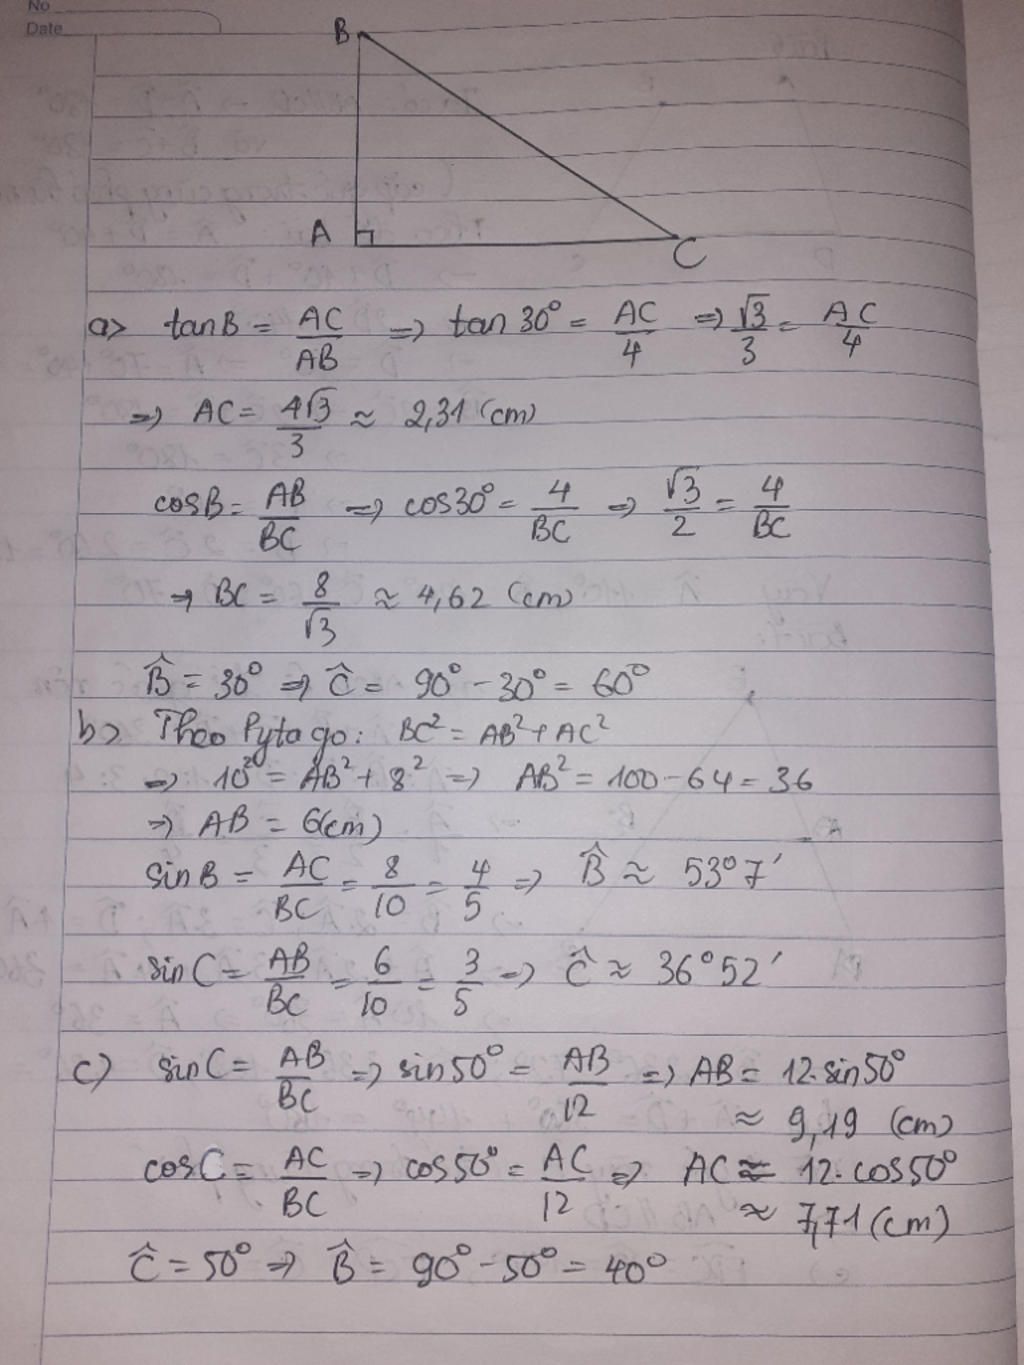 No
Date
B
A
C
a> tanB = AC/AB => tan 30° = AC/4 => √3/3 = AC/4
=> AC = 4√3/3 ≈ 2,31 (cm)
cosB = AB/BC => cos30° = 4/BC => √3/2 = 4/BC
=> BC = 8/√3 ≈ 4,62 (cm)
B̂ = 30° => Ĉ = 90° - 30° = 60°
b> Theo Pytago: BC² = AB² + AC²
=> 10² = AB² + 8² => AB² = 100 - 64 = 36
=> AB = 6(cm)
sinB = AC/BC = 8/10 = 4/5 => B̂ ≈ 53°7'
sinC = AB/BC = 6/10 = 3/5 => Ĉ ≈ 36°52'
c) sinC = AB/BC => sin50° = AB/12 => AB = 12.sin50°
≈ 9,19 (cm)
cosC = AC/BC => cos50° = AC/12 => AC = 12.cos50°
≈ 7,71 (cm)
Ĉ = 50° => B̂ = 90° - 50° = 40°